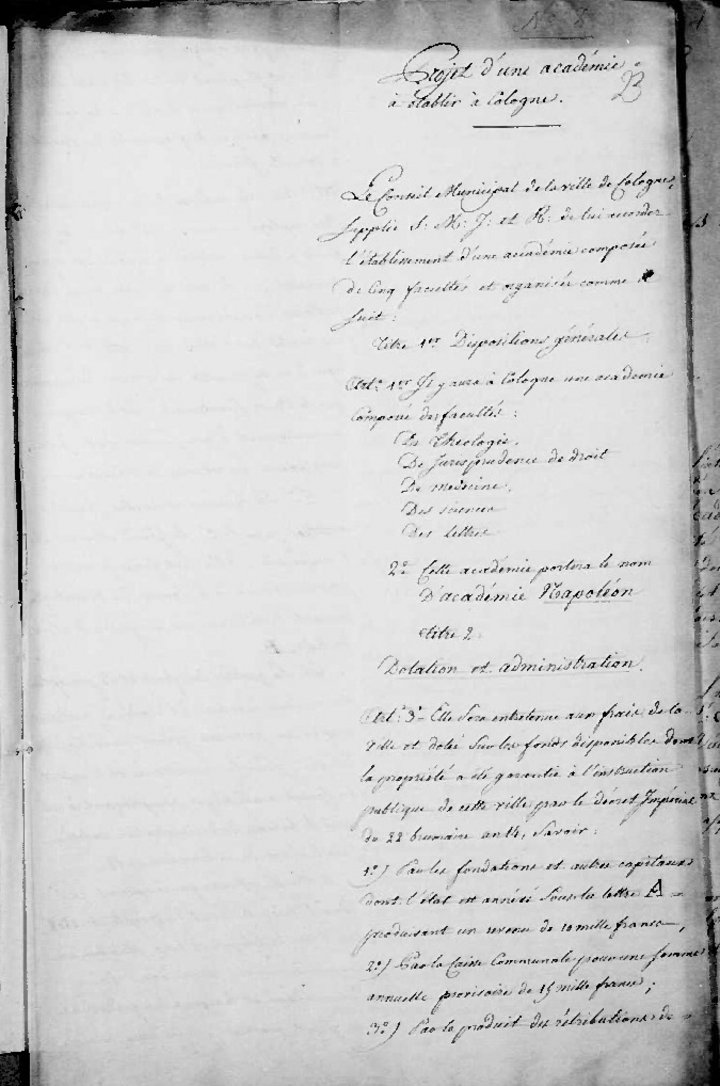 N° 8
Projet d'une académie
à établir à Cologne.
23
Le Conseil Municipal de la ville de Cologne,
supplie S: M: J: et R: de lui accorder
l'établissement d'une académie composée
de Cinq facultés et organisée comme
suit:
titre 1er Dispositions générales
Art: 1er Il y aura à Cologne une academie
Composée des facultés:
De Théologie.
De Jurisprudence de droit
De medecine.
Des sciences
Des lettres
2° Cette académie portera le nom
D'académie Napoléon
titre 2.
Dotation et administration.
Art: 3° Elle sera entretenue aux frais de la
Ville et dotée sur les fonds disponibles dont
la propriété a été garantie à l'instruction
publique de cette ville par le décret Impérial
du 22 brumaire an 14, savoir:
1°) Par les fondations et autres capitaux
dont l'état est annéxé sous la lettre A
produisant un revenu de 10 mille francs,
2°) Par la Caisse Communale pour une somme
annuelle provisoire de 15 mille francs;
3°) Par le produit des rétributions de